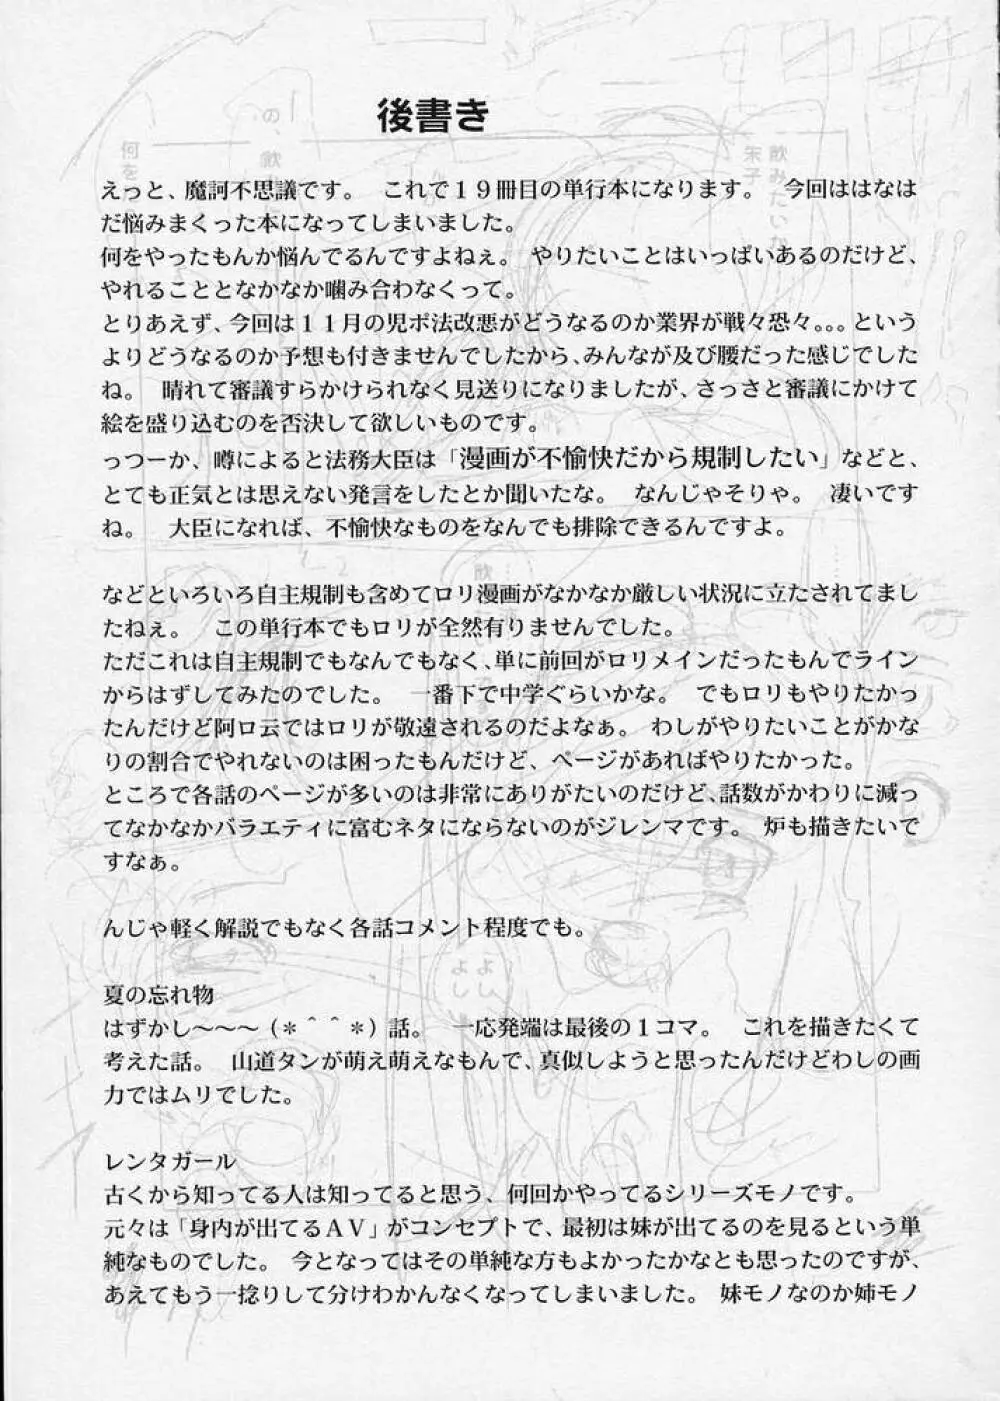 後書き
えっと、魔訶不思議です。 これで19冊目の単行本になります。 今回ははなは
だ悩みまくった本になってしまいました。
何をやったもんか悩んでるんですよねぇ。 やりたいことはいっぱいあるのだけど、
やれることとなかなか噛み合わなくって。
とりあえず、今回は11月の児ポ法改悪がどうなるのか業界が戦々恐々。。。という
よりどうなるのか予想も付きませんでしたから、みんなが及び腰だった感じでした
ね。 晴れて審議すらかけられなく見送りになりましたが、さっさと審議にかけて
絵を盛り込むのを否決して欲しいものです。
っつーか、噂によると法務大臣は「漫画が不愉快だから規制したい」などと、
とても正気とは思えない発言をしたとか聞いたな。 なんじゃそりゃ。 凄いです
ね。 大臣になれば、不愉快なものをなんでも排除できるんですよ。
などといろいろ自主規制も含めてロリ漫画がなかなか厳しい状況に立たされてまし
たねぇ。 この単行本でもロリが全然有りませんでした。
ただこれは自主規制でもなんでもなく、単に前回がロリメインだったもんでライン
からはずしてみたのでした。 一番下で中学ぐらいかな。 でもロリもやりたかっ
たんだけど阿ロ云ではロリが敬遠されるのだよなぁ。 わしがやりたいことがかな
りの割合でやれないのは困ったもんだけど、ページがあればやりたかった。
ところで各話のページが多いのは非常にありがたいのだけど、話数がかわりに減っ
てなかなかバラエティに富むネタにならないのがジレンマです。 炉も描きたいで
すなぁ。
んじゃ軽く解説でもなく各話コメント程度でも。
夏の忘れ物
はずかし〜〜〜(＊＾＾＊)話。 一応発端は最後の1コマ。 これを描きたくて
考えた話。 山道タンが萌え萌えなもんで、真似しようと思ったんだけどわしの画
力ではムリでした。
レンタガール
古くから知ってる人は知ってると思う、何回かやってるシリーズモノです。
元々は「身内が出てるAV」がコンセプトで、最初は妹が出てるのを見るという単
純なものでした。 今となってはその単純な方もよかったかなとも思ったのですが、
あえてもう一捻りして分けわかんなくなってしまいました。 妹モノなのか姉モノ